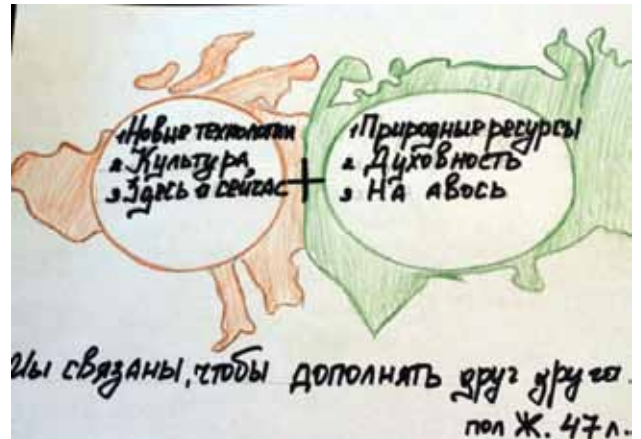 1 Новые технологии
2 Культура,
3 Здесь и сейчас
+
1 Природные ресурсы
2 Духовность
3 На авось
Мы связаны, чтобы дополнять друг друга.
пол Ж. 47 л.